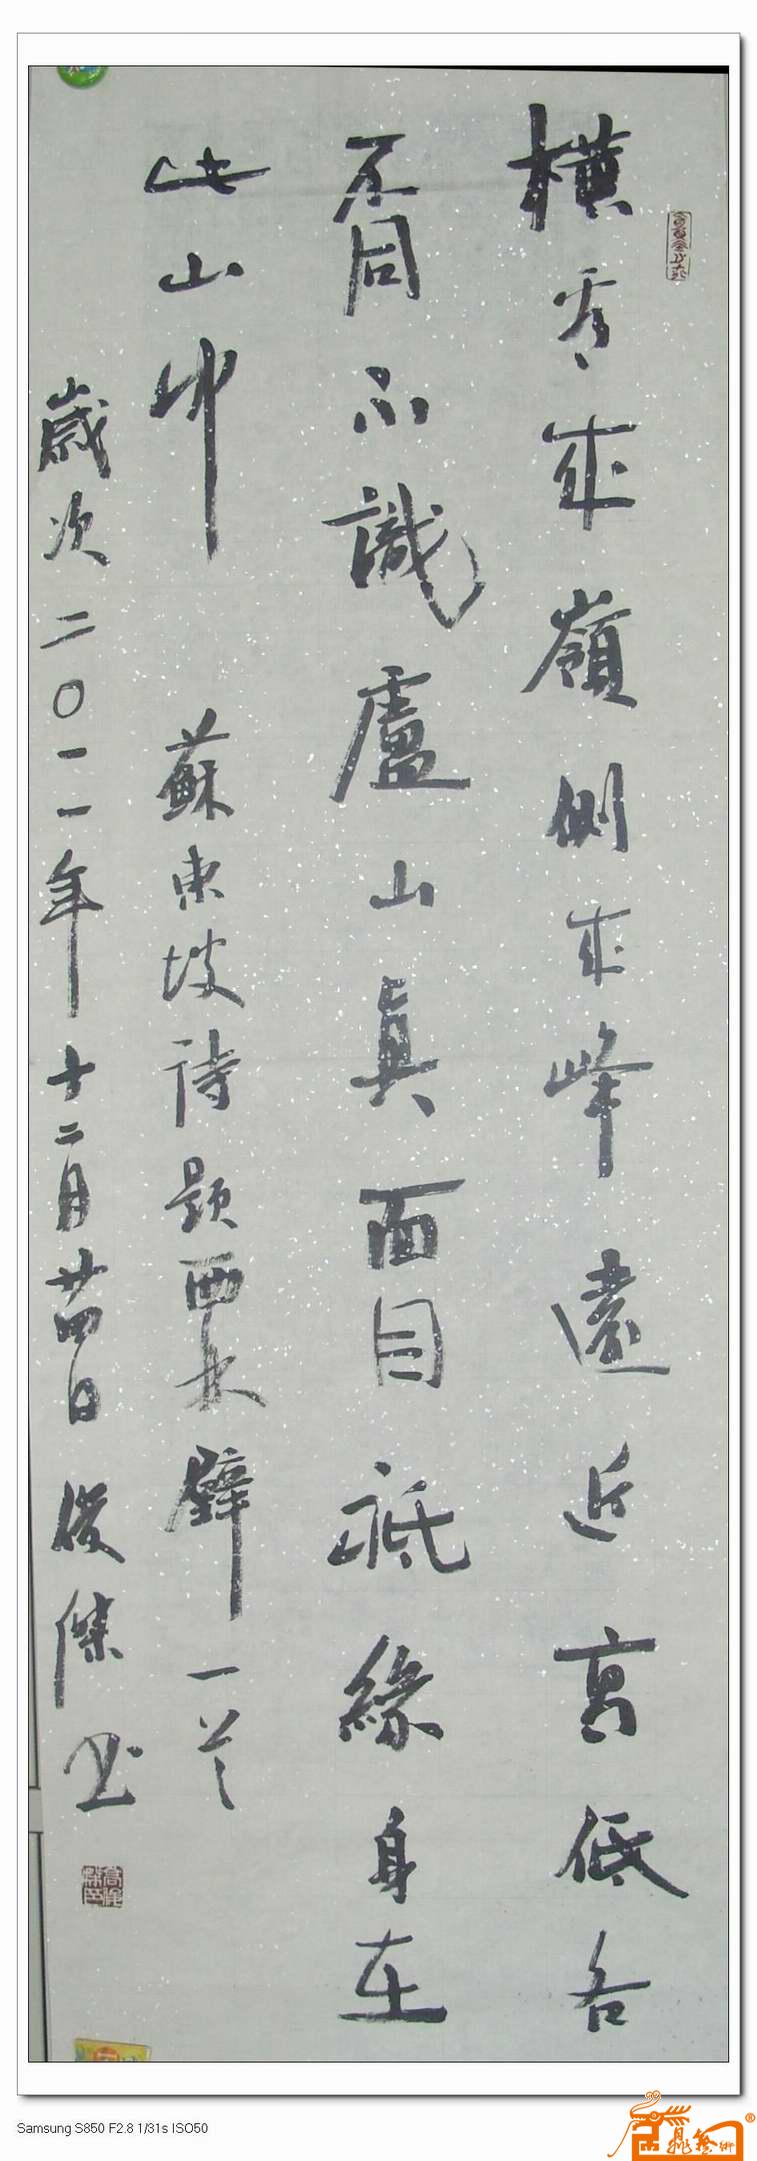 橫看成嶺側成峰遠近高低各
不同不識盧山真面目祇緣身在
此山中
蘇東坡詩題西林壁一首
歲次二〇一一年十二月廿四日俊傑书
Samsung S850 F2.8 1/31s ISO50